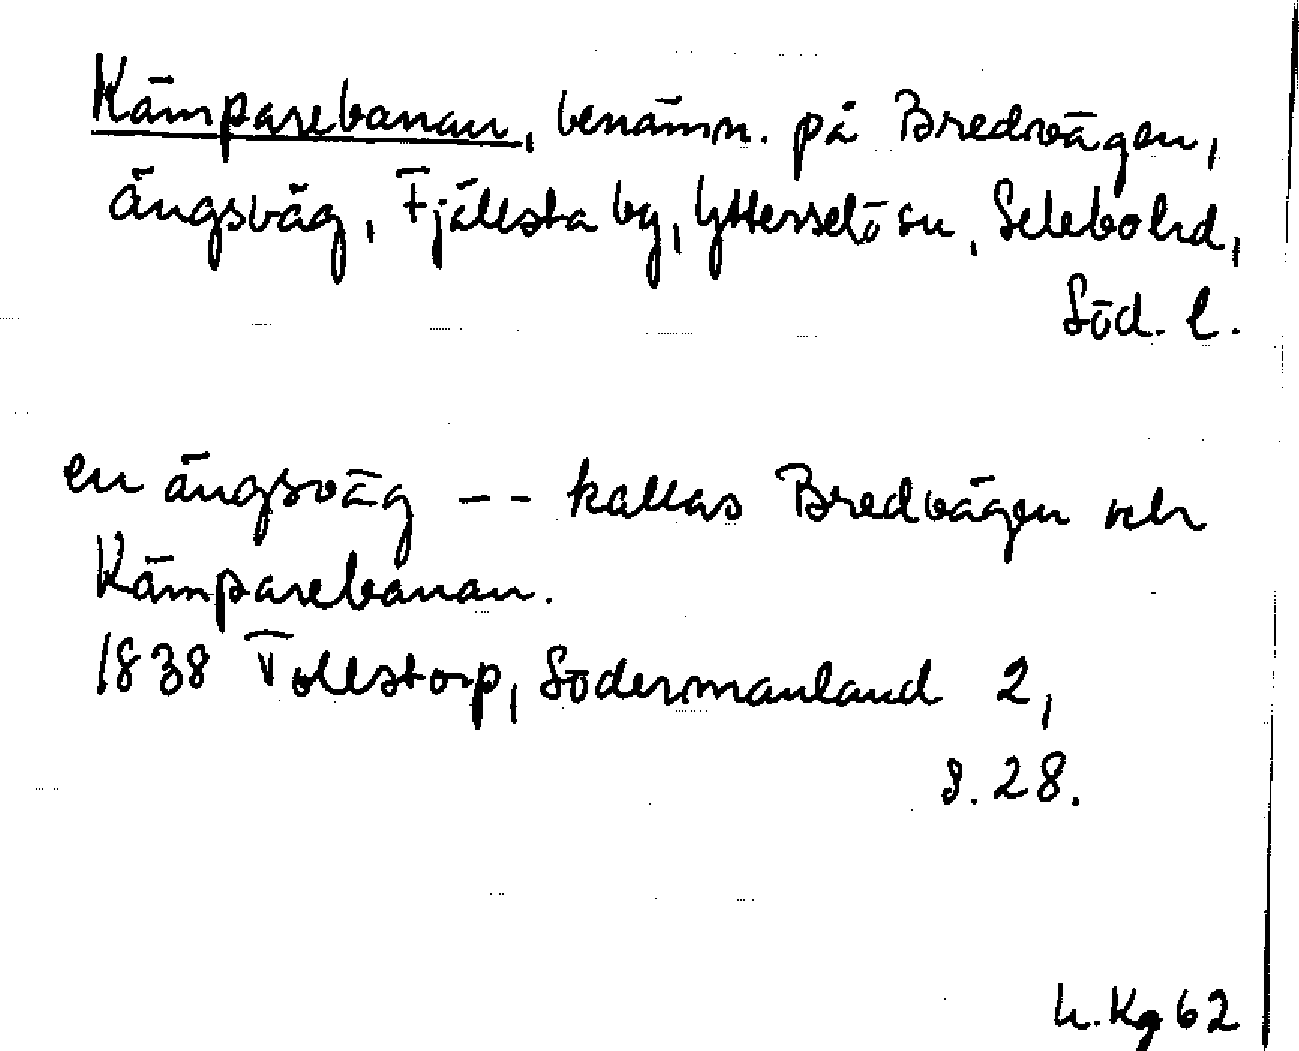 Kämparebanan, benämn. på Bredvägen,
ängsväg, Fjällsta by, Ytterselö sn, Selebo hd,
Söd. l.
en ängsväg -- kallas Bredvägen och
Kämparebanan.
1838 Tollstorp, Södermanland 2,
s. 28.
h. Kg 62